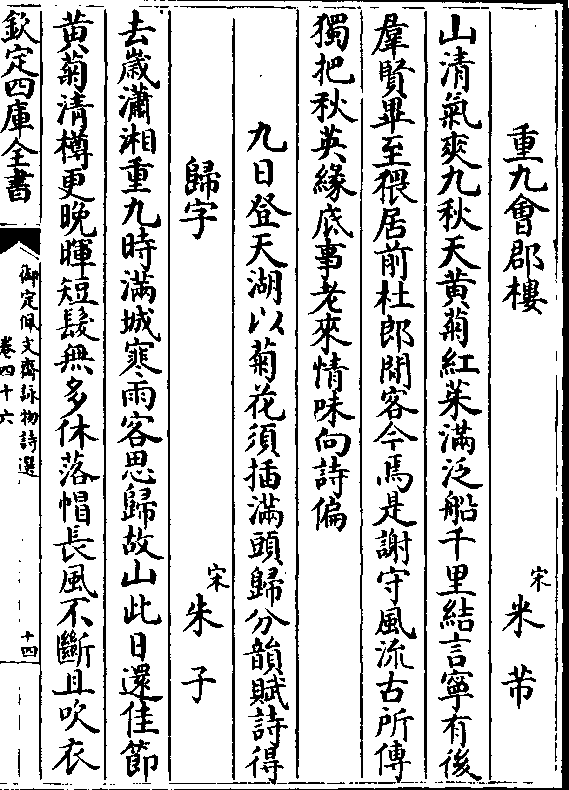 重九會郡樓
宋米芾
山清氣爽九秋天黄菊紅茱滿泛船千里結言寧有後
羣賢畢至猥居前杜郎閒客今焉是謝守風流古所傳
獨把秋英緣底事老來情味向詩偏
九日登天湖以菊花須插滿頭歸分韻賦詩得
歸字
宋朱子
去歲瀟湘重九時滿城寒雨客思歸故山此日還佳節
黄菊清樽更晚暉短髮無多休落帽長風不斷且吹衣
欽定四庫全書
御定佩文齋詠物詩選
卷四十六
十四